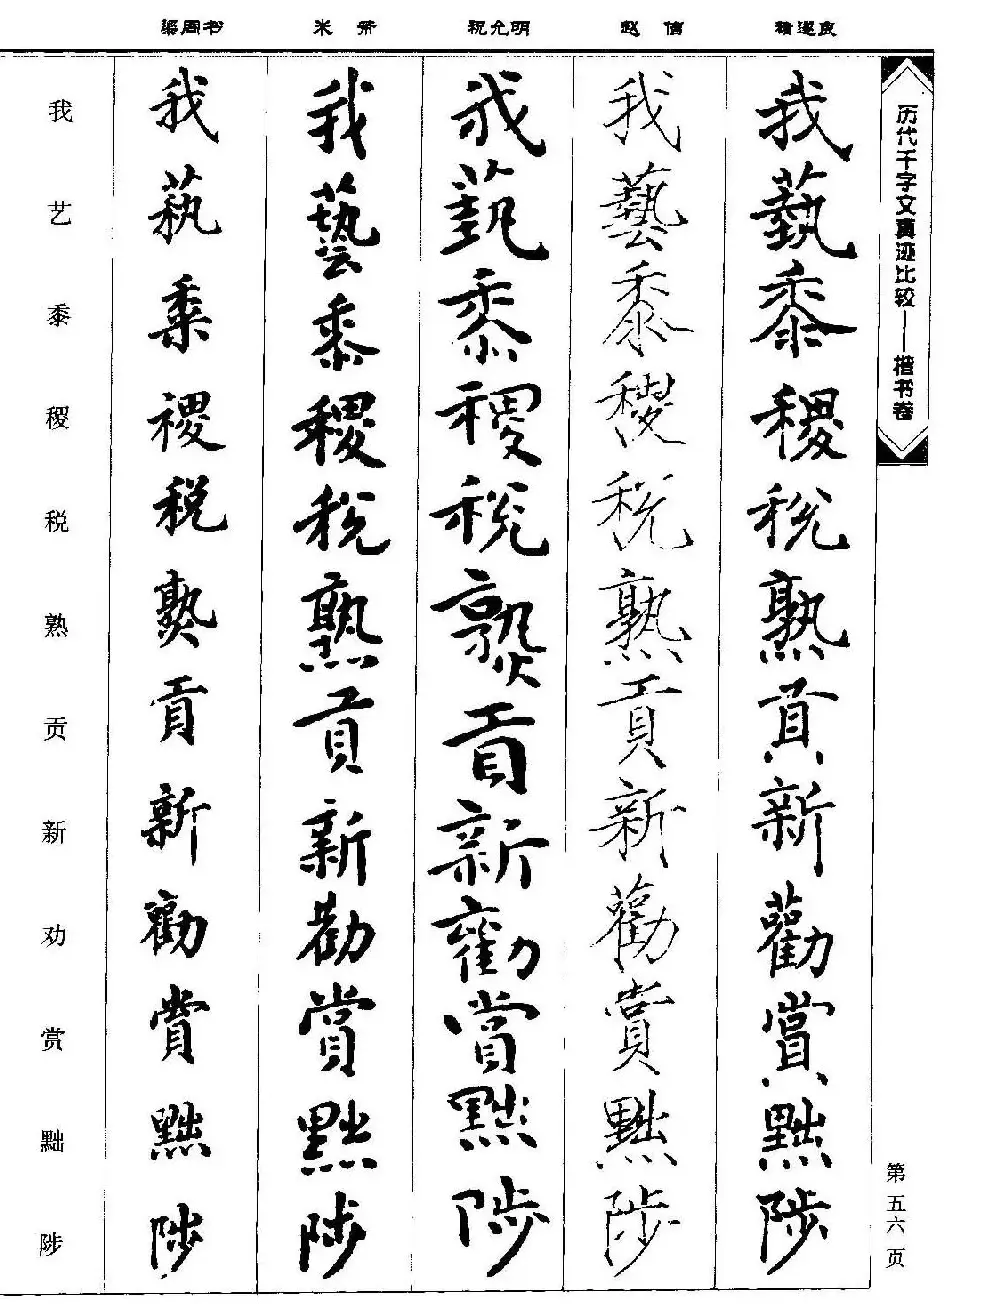 梁同书 米 芾 祝允明 赵 佶 褚遂良
历代千字文真迹比较——楷书卷
第五六页
我藝黍稷稅熟貢新勸賞黜陟
我藝黍稷稅熟貢新勸賞黜陟
我藝黍稷稅熟貢新勸賞黜陟
我藝黍稷稅熟貢新勸賞黜陟
我藝黍稷稅熟貢新勸賞黜陟
我艺黍稷税熟贡新劝赏黜陟